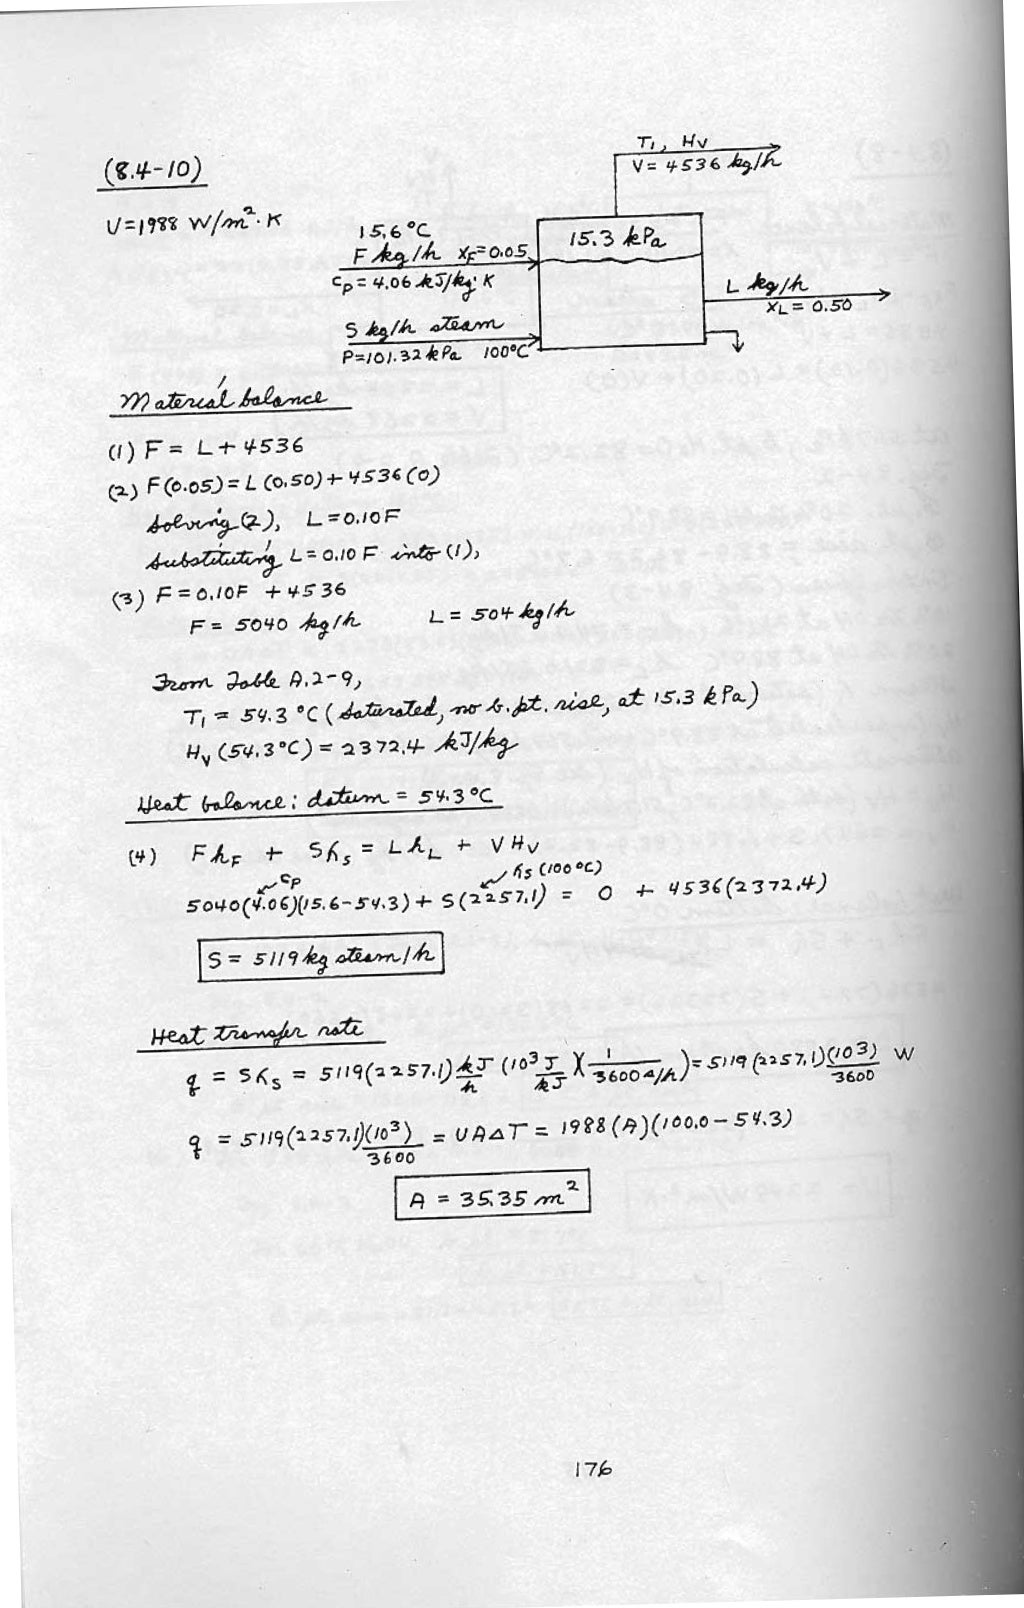 (8.4-10)
U=1988 W/m²·K
T₁, Hᵥ
V= 4536 kg/h
15.6°C
F kg/h x_F=0.05
c_p = 4.06 kJ/kg·K
15.3 kPa
L kg/h
x_L = 0.50
S kg/h steam
P=101.32 kPa 100°C
Material balance
(1) F = L + 4536
(2) F(0.05) = L(0.50) + 4536(0)
Solving (2), L = 0.10F
Substituting L = 0.10 F into (1),
(3) F = 0.10F + 4536
F = 5040 kg/h L = 504 kg/h
From Table A.2-9,
T₁ = 54.3 °C (saturated, no b.pt. rise, at 15.3 kPa)
Hᵥ (54.3°C) = 2372.4 kJ/kg
Heat balance: datum = 54.3°C
(4) F h_F + Sλ_s = L h_L + V Hᵥ
c_p λ_s (100°C)
5040(4.06)(15.6-54.3) + S(2257.1) = 0 + 4536(2372.4)
S = 5119 kg steam/h
Heat transfer rate
q = Sλ_s = 5119(2257.1) kJ/h (10³ J/kJ)(1/3600 s/h) = 5119(2257.1)(10³)/3600 W
q = 5119(2257.1)(10³)/3600 = UAΔT = 1988(A)(100.0-54.3)
A = 35.35 m²
176